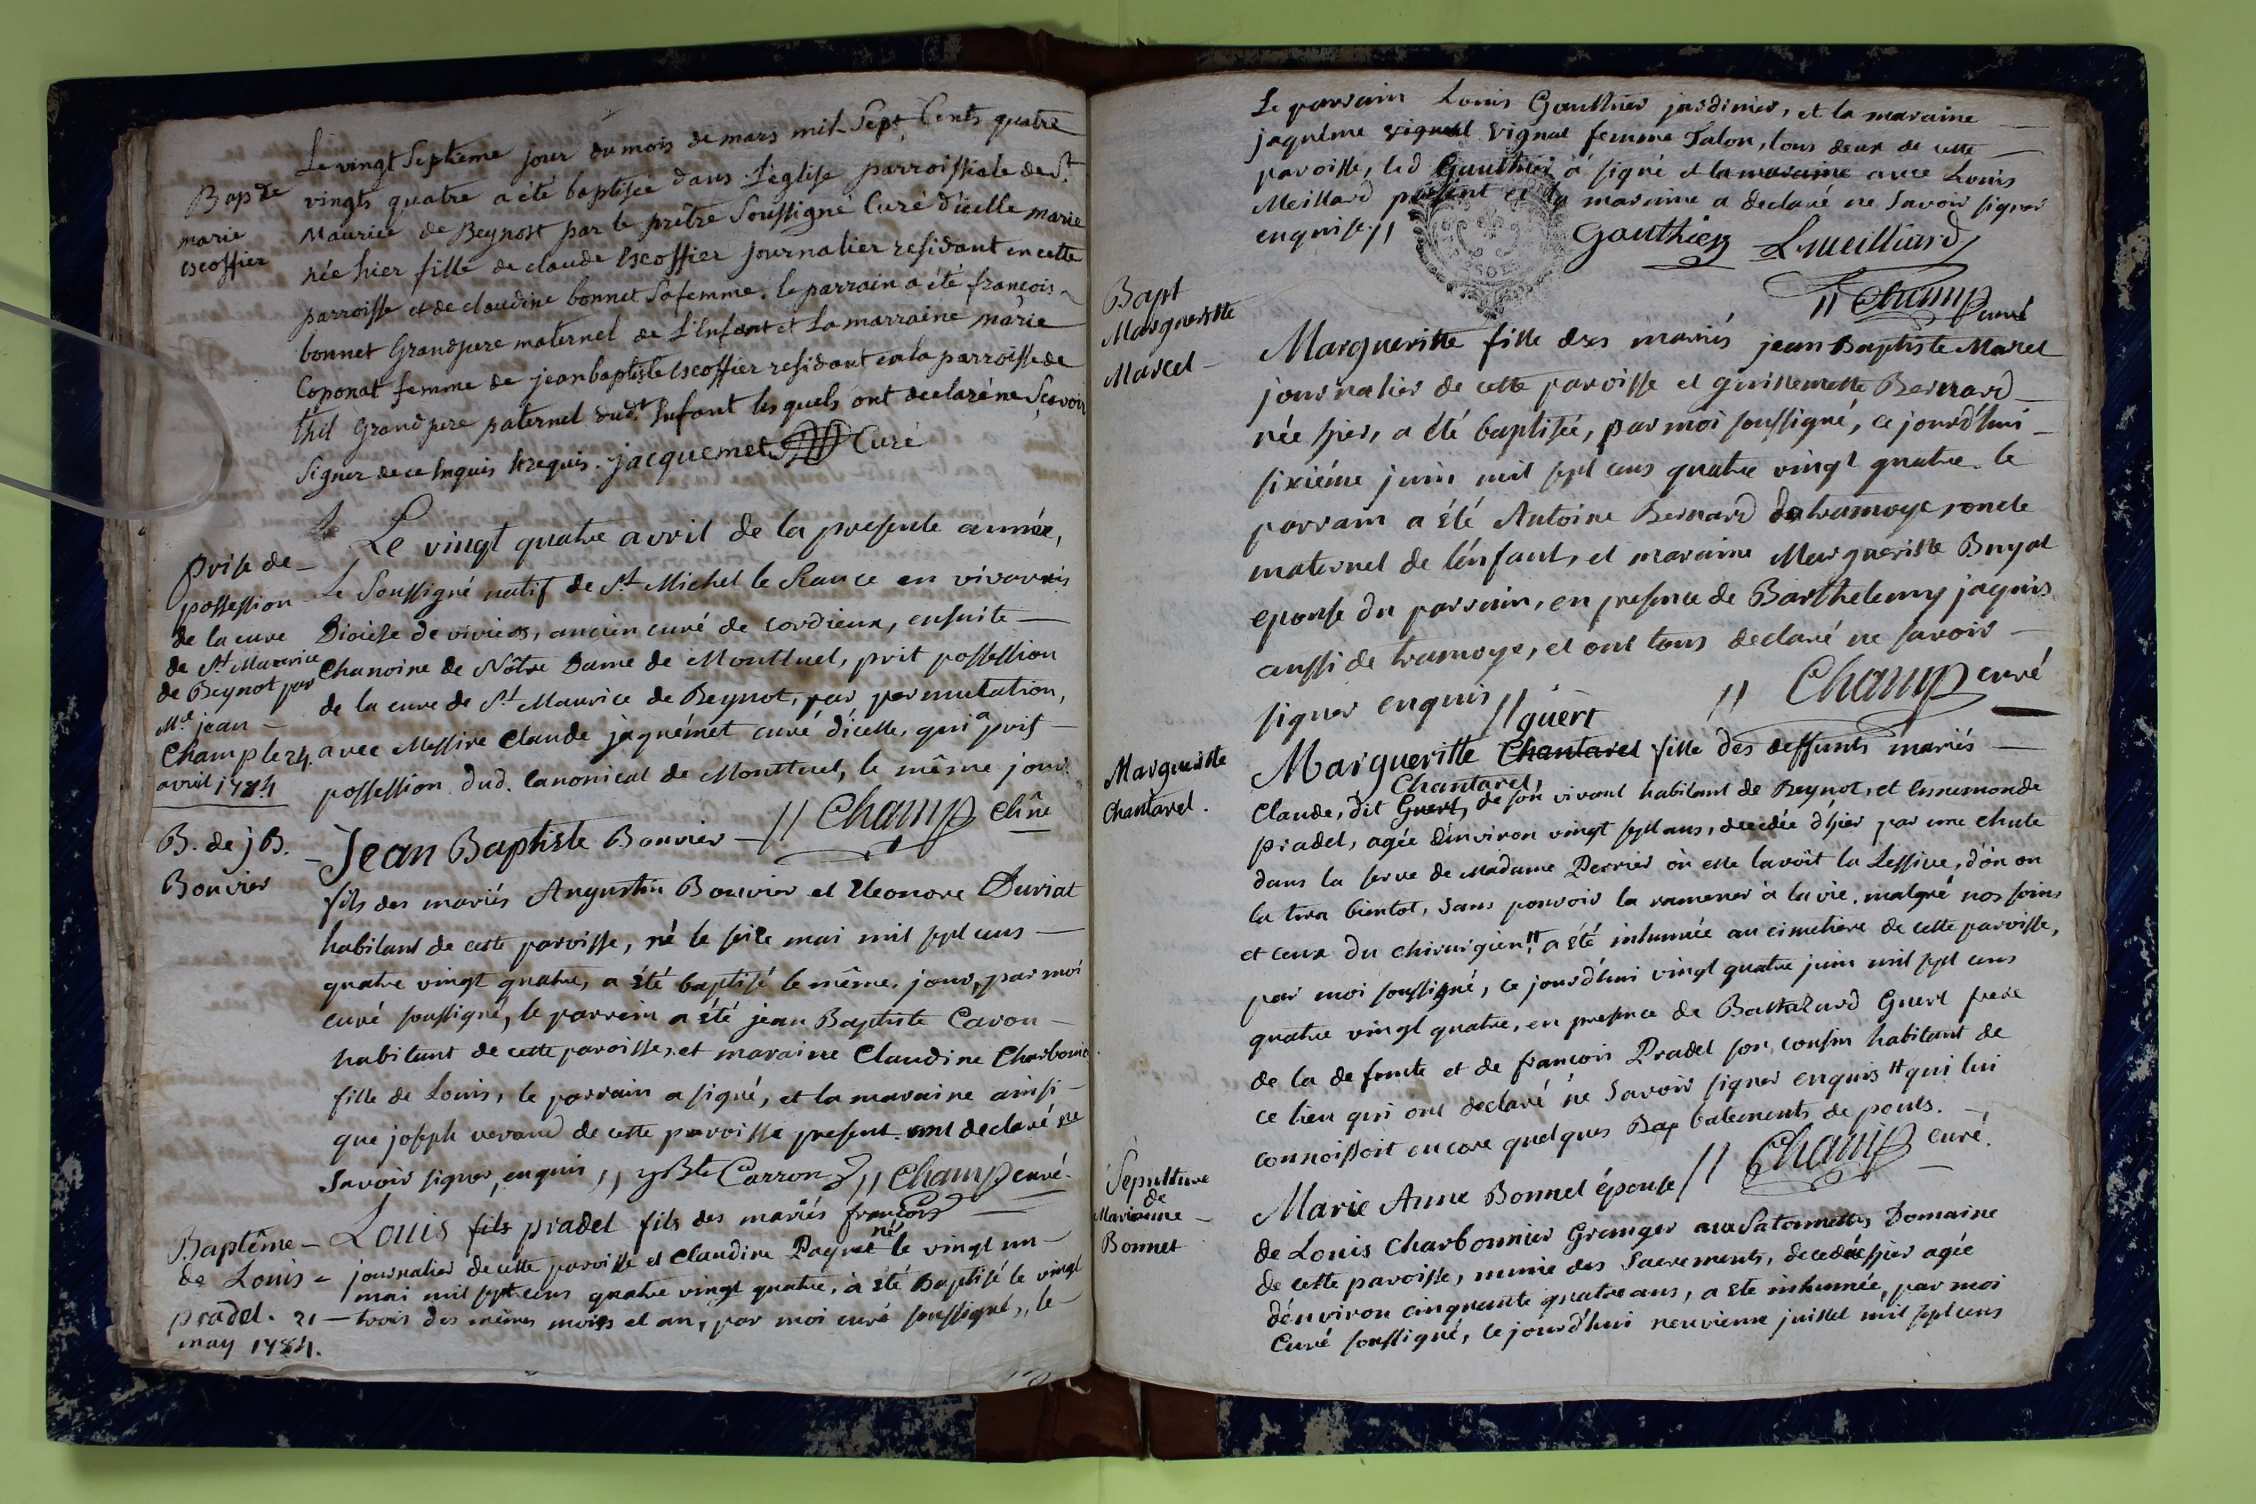 Le vingt Septieme jour du mois de mars mil Sept Cents quatre
Bap de
marie
escoffier
vingts quatre a été baptisée dans L'eglise parroissiale de St
Maurice de Beynost par le prêtre Soussigné Curé d'icelle marie
née hier fille de claude escoffier journalier residant en cette
parroisse et de claudine bonnet Safemme. le parrain a été françois
bonnet Grandpere maternel de L'Enfant et La marraine marie
Coponat femme de jeanbaptiste escoffier residant en la parroisse de
thil Grandpere paternel dudt Enfant les quels ont declaré ne Scavoir
Signer de ce Enquis & requis. jacquemet Curé
Prise de
possession
de la cure
de St Maurice
de Beynot par
Me jean
Champ le 24.
avril 1784
Le vingt quatre avril de la presente année,
Le Soussigné natif de St Michel le Rance en vivarais
Diocèse de viviers, ancien curé de cordieux, ensuite
Chanoine de Nôtre Dame de Montluel, prit possession
de la cure de St Maurice de Beynot, par permutation,
avec Messire Claude jaquémet curé d'icelle, qui a pris
possession dud. Canonicat de Montluel, le même jour.
// Champ chne
B. de j B.
Bouvier
Jean Baptiste Bouvier
fils des mariés Augustin Bouvier et Eleonore Duriat
habitant de cette paroisse, né le seize mai mil sept cens
quatre vingt quatre, a été baptisé le même jour, par moi
curé soussigné, le parrein a été jean Baptiste Caron
habitant de cette paroisse, et maraine Claudine Charbonie
fille de Louis, le parrain a signé, et la maraine ainsi
que joseph verand de cette paroisse present ont declaré ne
Savoir signer, enquis // jBte Carron // Champ curé
Baptême
de Louis
pradel. 21
may 1784.
Louis fils pradel fils des mariés françois
journalier de cette paroisse et Claudine Paynet né le vingt un
mai mil sept cens quatre vingt quatre, à été Baptisé le vingt
trois des mêmes mois et an, par moi curé soussigné, le
Le parrain Louis Gauthier jardinier, et la maraine
jaquéme vignal vignal femme Talon, tous deux de cette
paroisse, led Gauthier à signé et la maraine avec Louis
Meillard présent et la maraine a declaré ne Savoir signer
enquise. //
Gauthier Lmeilliard
// Champ curé
Bapt
Margueritte
Marcel
Margueritte fille des mariés jean Baptiste Marcel
journalier de cette paroisse et guillemette Bernard
née hier, a été baptisée, par moi soussigné, ce jourd'hui
sixiéme juin mil sept cens quatre vingt quatre. le
parrain a été Antoine Bernard de tramoye, oncle
maternel de l'énfant, et maraine Margueritte Buyat
epouse du parrain, en presence de Barthelemy jaquis
aussi de tramoye, et ont tous declaré ne savoir
signer enquis // Champ curé
Margueritte
Chantarel.
// guërt
Margueritte Chantarel fille des deffunts mariés
Chantarel,
Claude, dit Guert, de son vivant habitant de Beynot, et Ennemonde
pradel, agée d'environ vingt sept ans, decedée d'hier par une chute
dans la serve de Madame Perrier où elle lavoit la Lessive, d'où on
la tira bientot, sans pouvoir la ramener à la vie. malgré nos soins
et ceux du chirurgien, # a été inhumée au cimetiere de cette paroisse,
par moi soussigné, ce jourd'hui vingt quatre juin mil sept cens
quatre vingt quatre, en presence de Baltazard Guert frere
de la defunte et de françois Pradel son cousin habitant de
ce lieu qui ont declaré ne Savoir signer enquis # qui lui
connoissoit encore quelques Bap batements de pouls.
// Champ curé.
Sepulture
de
Marianne
Bonnet
Marie Anne Bonnet épouse
de Louis Charbonnier Granger aux Satonnettes Domaine
de cette paroisse, munie des Sacrements, decedée hier agée
d'énviron cinquante quatre ans, a ete inhumée, par moi
Curé soussigné, ce jourd'hui neuvieme juillet mil sept cens